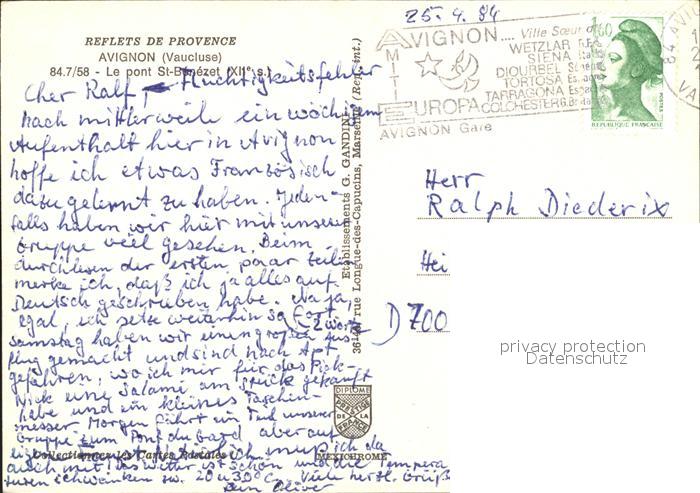 REFLETS DE PROVENCE
AVIGNON (Vaucluse)
84.7/58 - Le pont St-Bénézet (XIIe s.)
Cher Ralf, ← Flüchtigkeitsfehler
nach mittlerweile einwöchigem
Aufenthalt hier in Avignon
hoffe ich etwas Französisch
dazugelernt zu haben. Jeden-
falls haben wir hier mit unserer
Gruppe viel gesehen. Beim
durchlesen der ersten paar Zeilen
merke ich, daß ich ja alles auf
Deutsch geschrieben habe. Na ja,
egal, ich setze weiterhin so fort
(2 Worte)
Samstag haben wir einen großen Aus-
flug gemacht und sind nach Apt
gefahren, wo ich mir für das Pick-
Nick eine Salami am Stück gekauft
habe und ein kleines Taschen-
messer. Morgen fährt ein Teil unserer
Gruppe zum Pont du Gard, aber auf
ich da
auch mit. Das Wetter ist schön und die Tempera
turen schwanken zw. 20 u 30°C. Viele herzl. Grüße
Dein Oliver
Collectionnez les Cartes Postales
Etablissements G. GANDINI
36-40, rue Longue-des-Capucins, Marseille (Rep. int.)
DIPLOME
PRESTIGE
DE LA
FRANCE
MEXICHROME
25. 4. 84
AVIGNON.... Ville Sœur de
WETZLAR R.F.A.
SIENA
DIOURBEL
TORTOSA
TARRAGONA
COLCHESTER
AMITIE
EUROPA
AVIGNON Gare
1,60
POSTES
REPUBLIQUE FRANCAISE
Herr
Ralph Diederix
Hei
D 700
privacy protection
Datenschutz